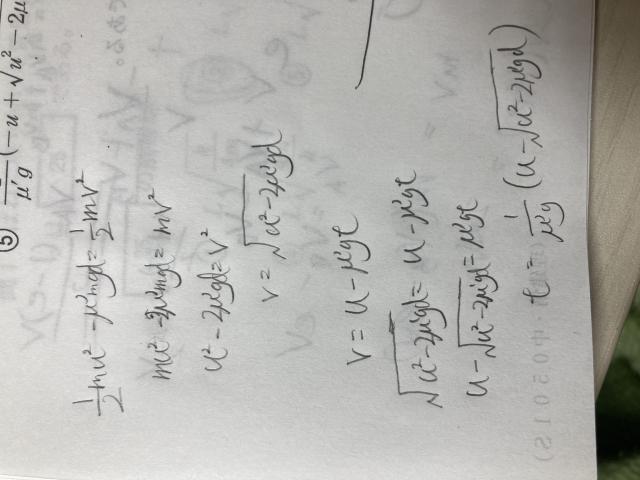 ⑤ 1/μ'g (−u + √u² − 2μ
1/2 mu² − μ'mgd = 1/2 mv²
mu² − 2μ'mgd = mv²
u² − 2μ'gd = v²
v = √u² − 2μ'gd
v = u − μ'gt
√u² − 2μ'gd = u − μ'gt
u − √u² − 2μ'gd = μ'gt
t = 1/μ'g (u − √u² − 2μ'gd)